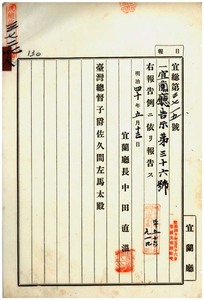 日報
宜總第 號
一宜蘭廳告示第三十六號
右報告例ニ依リ報告ス
明治四十年五月十五日
宜蘭廳長中田直溫
臺灣總督子爵佐久間左馬太殿
宜蘭廳